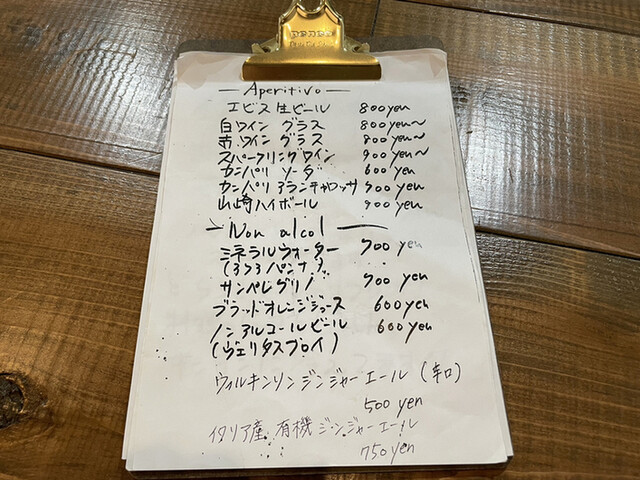 — Aperitivo —
エビス生ビール 800yen
白ワイン グラス 800yen~
赤ワイン グラス 800yen~
スパークリングワイン 900yen~
カンパリ ソーダ 600yen
カンパリ アランチャロッサ 700yen
山崎ハイボール 900yen
— Non alcol —
ミネラルウォーター 700yen
サンペレグリノ 700yen
ブラッドオレンジジュース 600yen
ノンアルコールビール 600yen
(ヴェリタスブロイ)
ウィルキンソンジンジャーエール (辛口)
500yen
イタリア産 有機ジンジャーエール
750yen